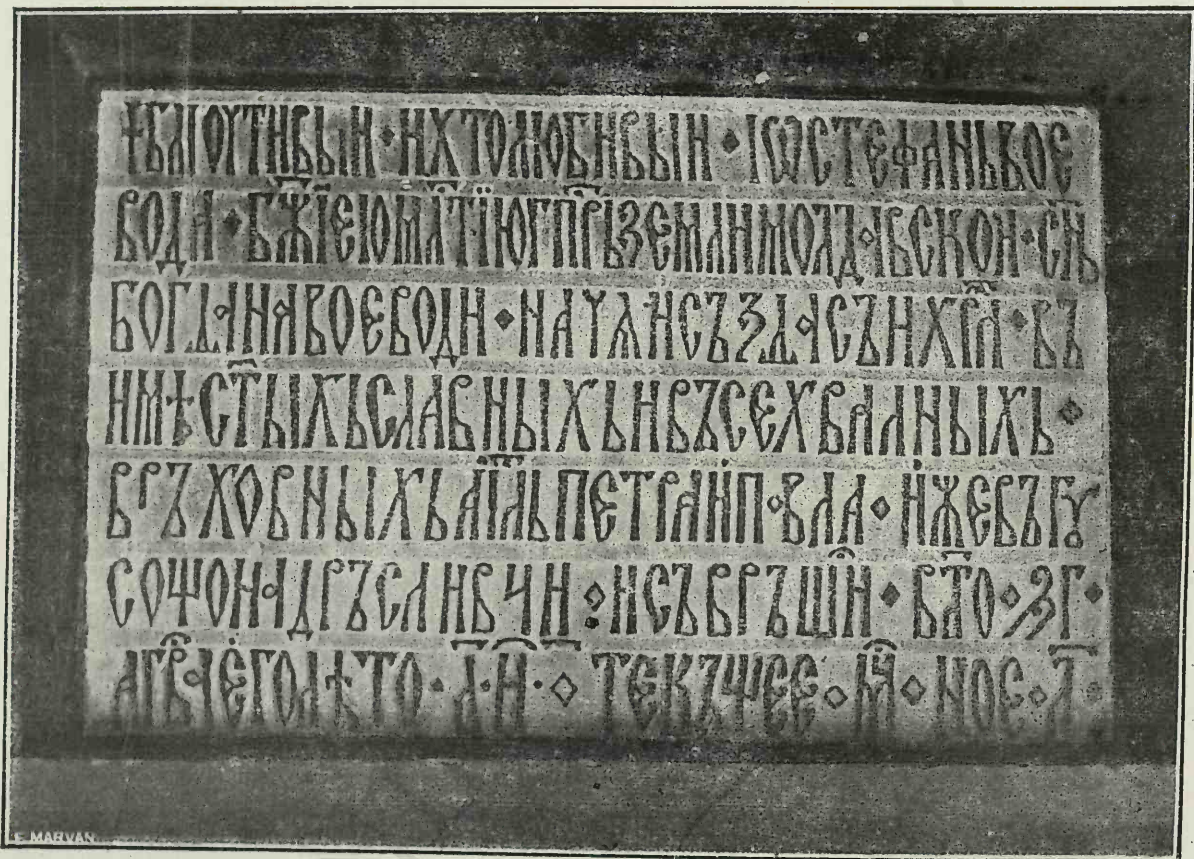 † БЛГОЧТИВЫИ · И ХТОЛЮБИВЫИ · ІѠ СТЕФАНЬ ВОЕ
ВОДА · БЖІЕЮ МЛТІЮ ГПРЬ ЗЕМЛИ МОЛДАВСКОИ · СНЬ
БОГДАНА ВОЕВОДИ · НАЧА И СЪЗДА СЪИ ХРА · ВЪ
ИМѢ СТЫХЬ СЛАВНЫХЬ И ВЪСЕХВАЛНЫХЬ ·
ВРЪХОВНЫХЬ АПЛЬ ПЕТРА И ПАВЛА · ИЖЕ ВЪ ГꙊ
СОЩОИ ДРЪСЛИВЧИ · И СЪВРЪШИ · В ЛТО · ЗГ ·
ЕГО ЛѢТО · Л · И · ТЕКꙊЩЕЕ · МЦ · НОЕ · Л ·
MARVAN